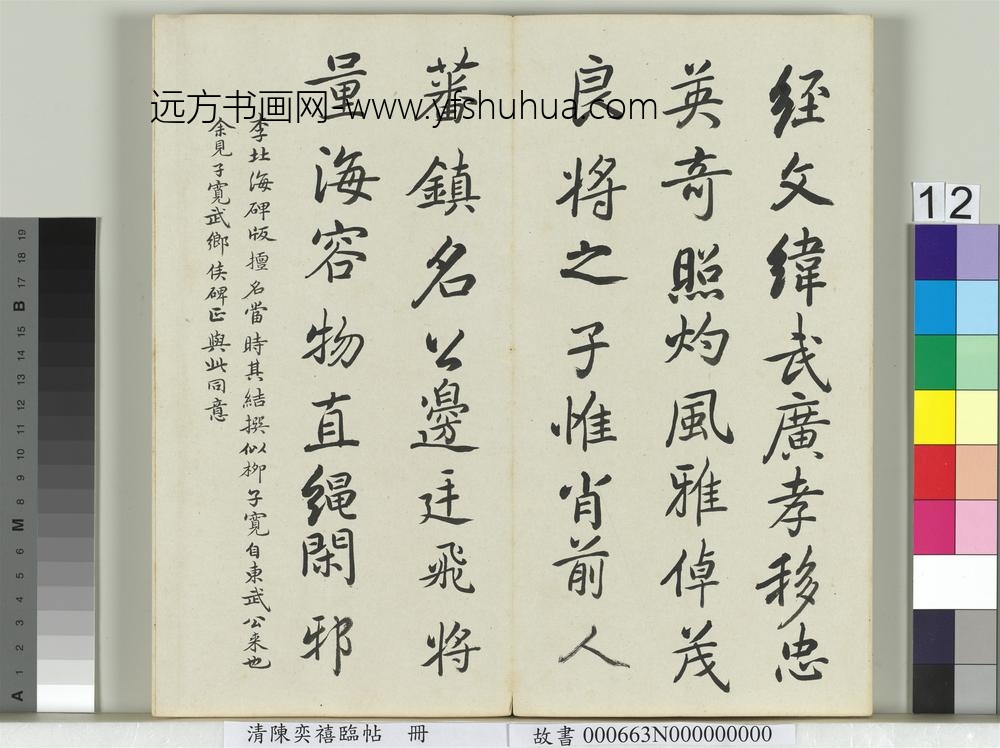 經文緯武廣孝移忠
英奇照灼風雅倬茂
良將之子惟肖前人
蕃鎮名公邊廷飛將
量海容物直繩閑邪
李北海碑版擅名當時其結撰似柳子寬自東武公來也
余見子寬武鄉侯碑正與此同意
远方书画网-www.yfshuhua.com
12
19
18
17
B
15
14
13
12
11
10
9
8
M
6
5
4
3
2
1
A
清陳奕禧臨帖 冊
故書 000663N000000000